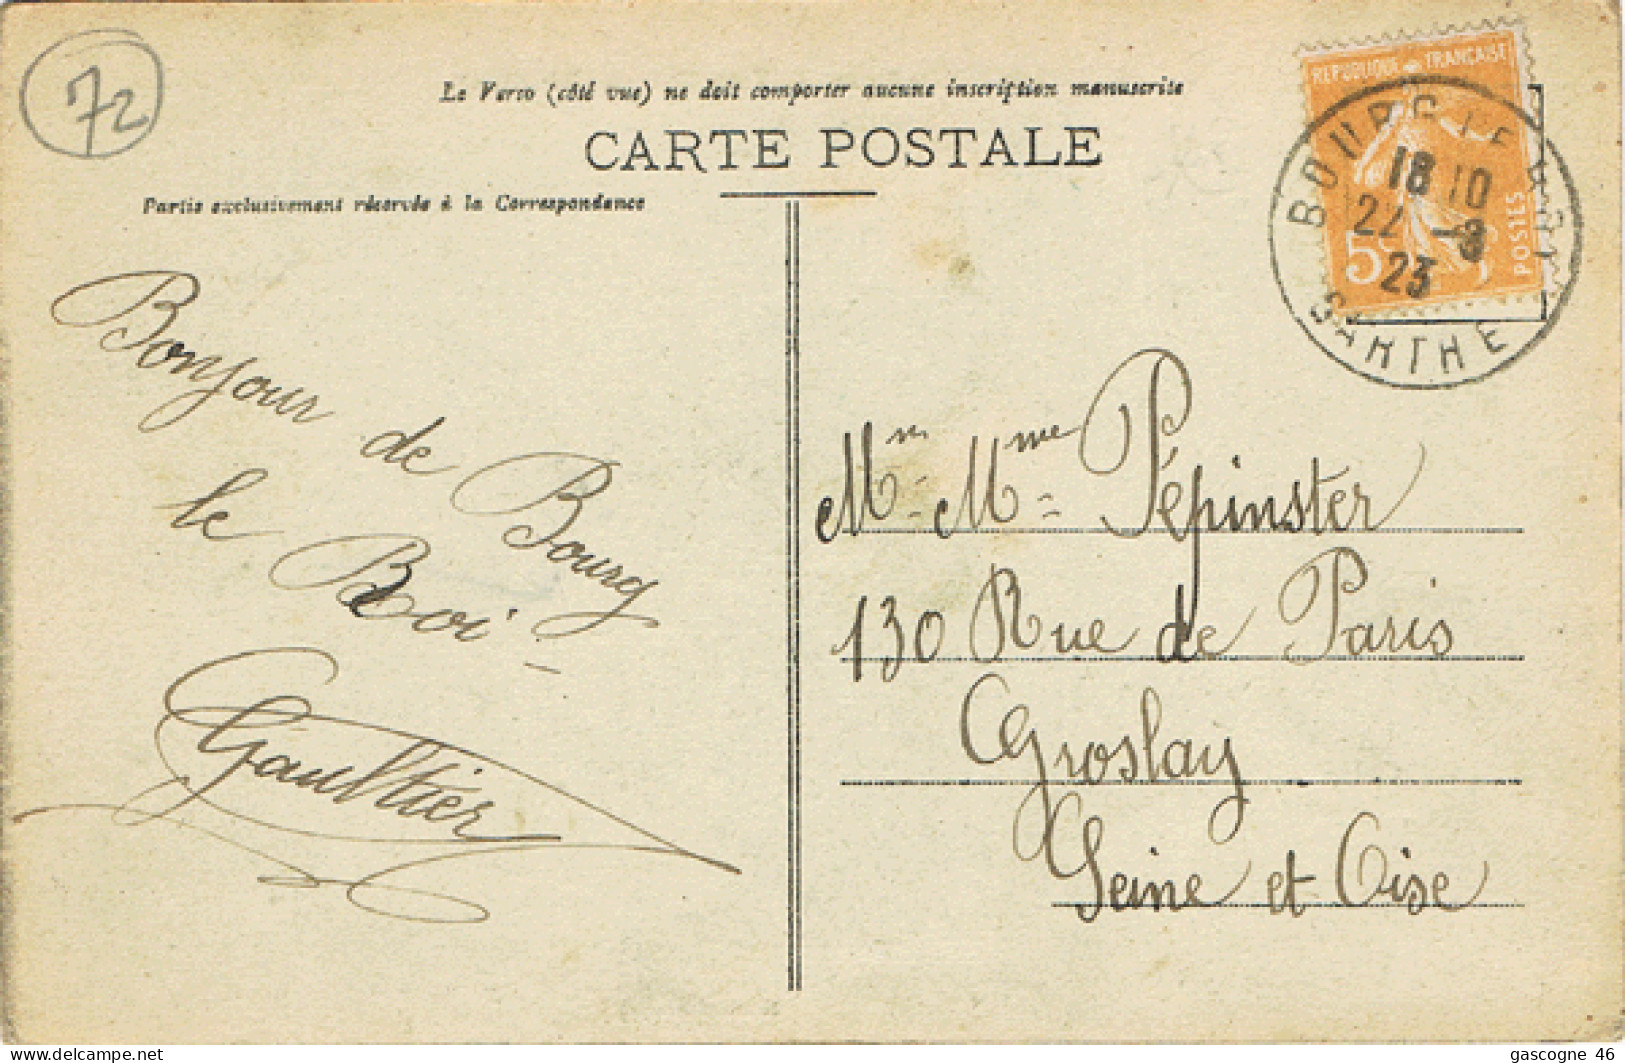 72
Le Verso (côté vue) ne doit comporter aucune inscription manuscrite
CARTE POSTALE
Partie exclusivement réservée à la Correspondance
REPUBLIQUE FRANÇAISE
5c
POSTES
BOURG LE ROI
18 10
22 -8
23
SARTHE
Bonjour de Bourg
le Roi
Gaulthier
Mr. Mme Pépinster
130 Rue de Paris
Groslay
Seine et Oise
delcampe.net
gascogne 46